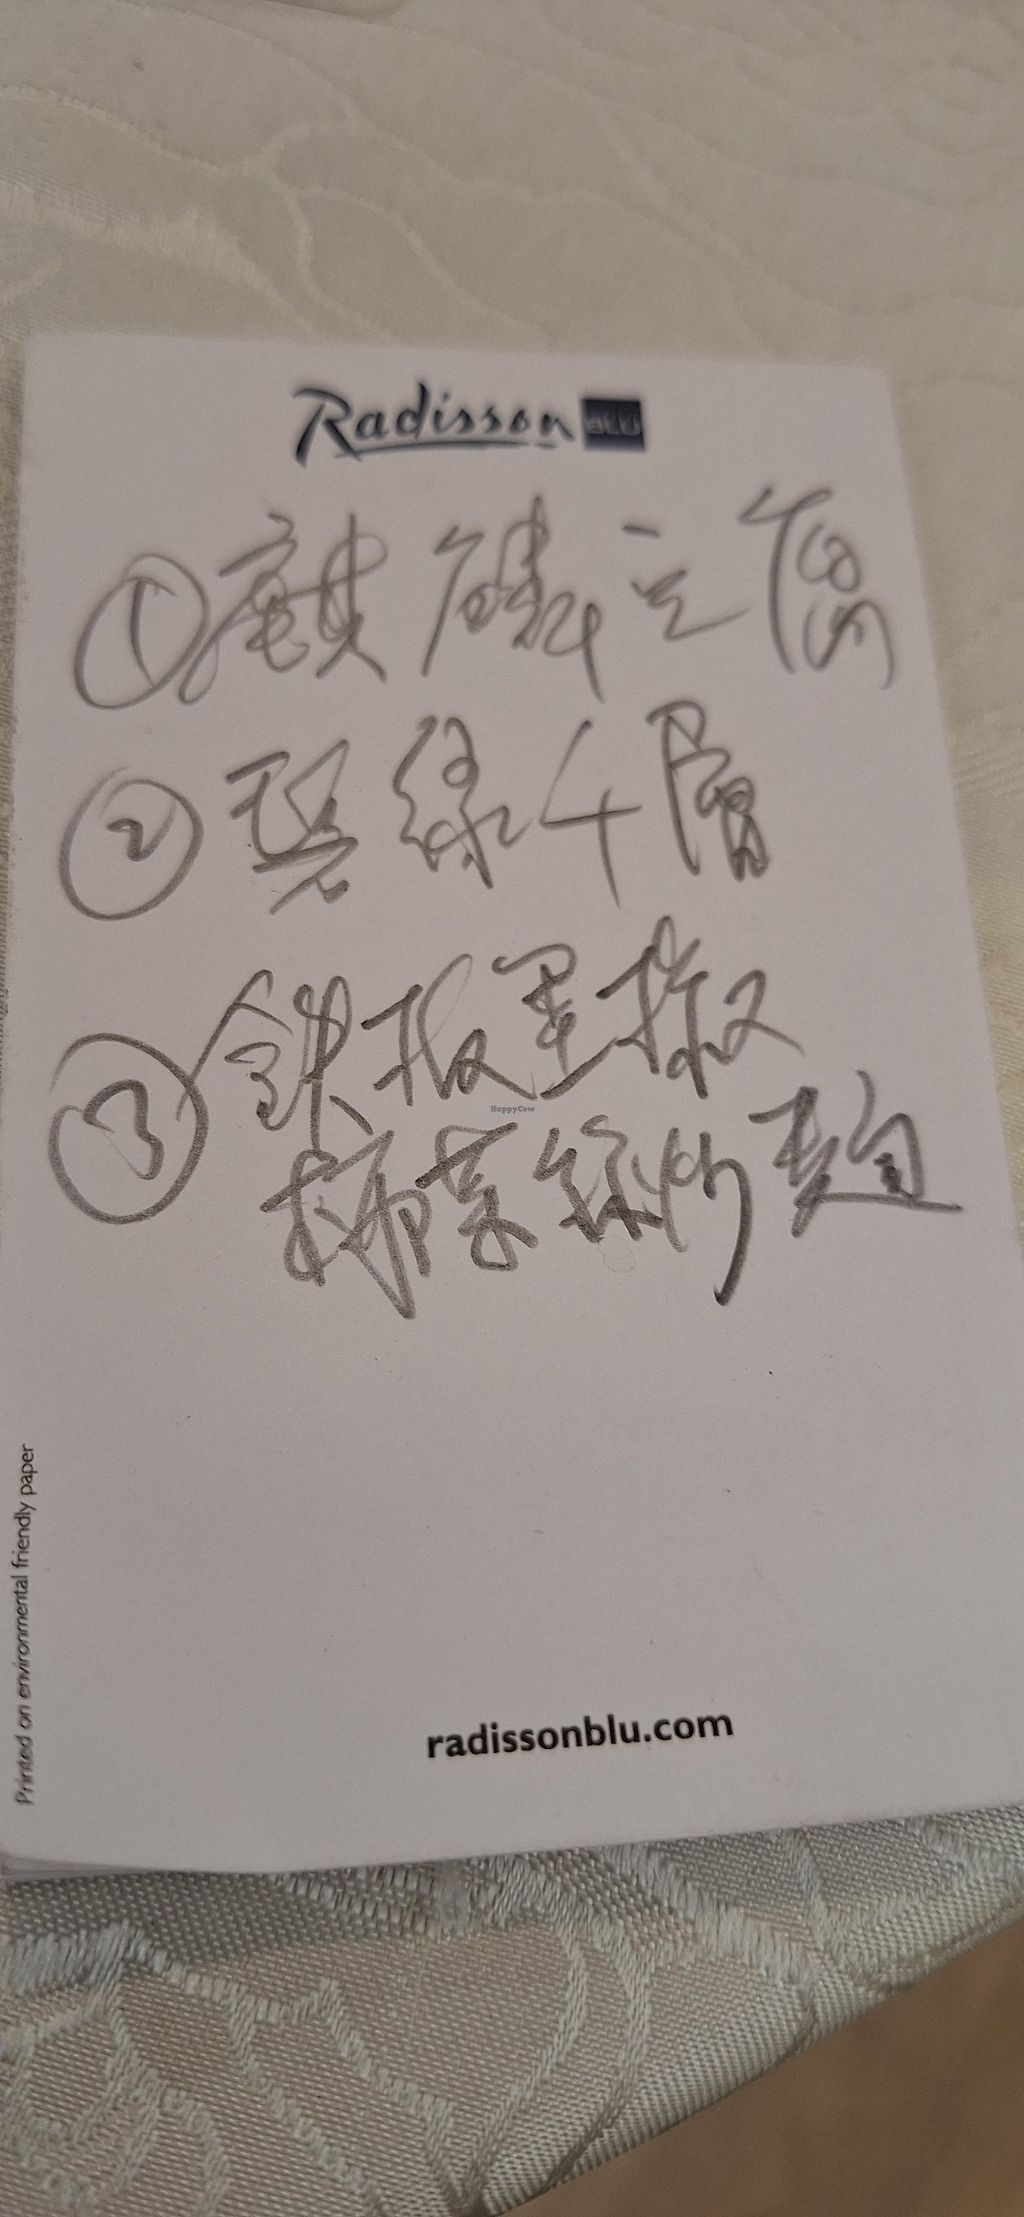 Radisson BLU
① 麒麟豆腐
② 碧綠千層
③ 鐵板黑椒
椰菜絲炒麵
HappyCow
Printed on environmental friendly paper
radissonblu.com